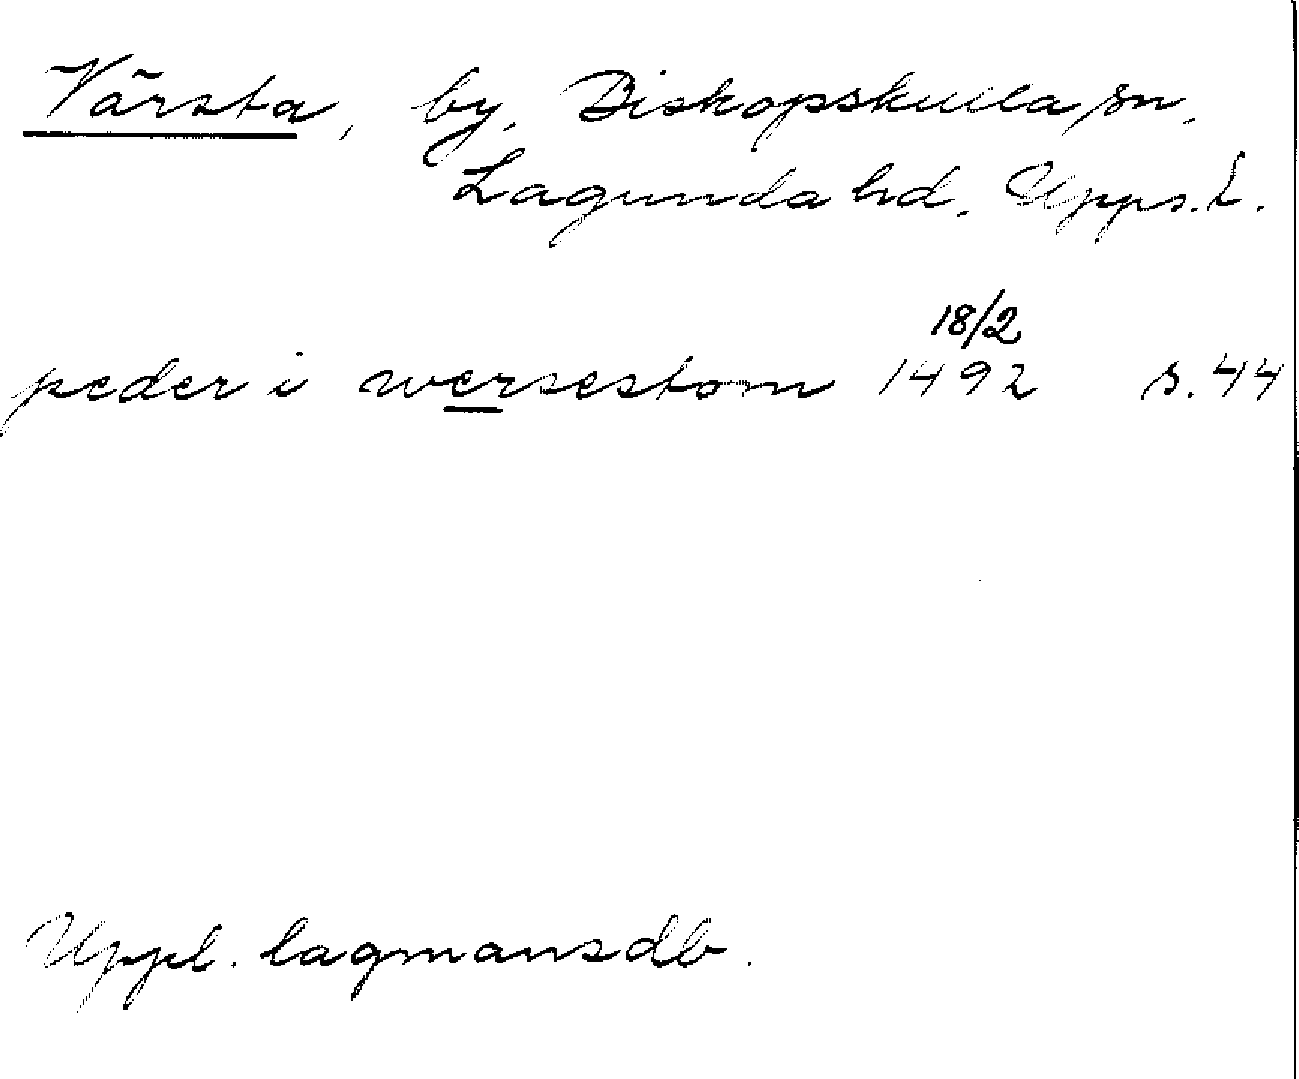 Värsta, by, Biskopskulla sn,
Lagunda hd, Upps. L.
18/2
peder i wersestom 1492 s. 44
Uppl. lagmansdb.